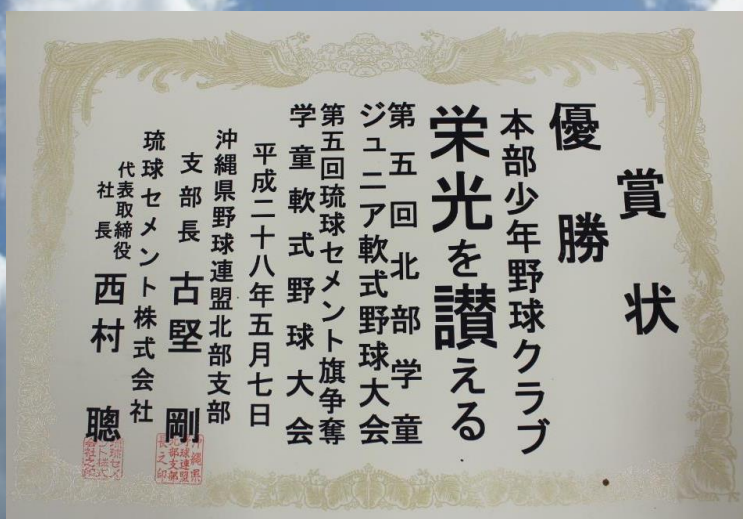 賞状
優勝
本部少年野球クラブ
栄光を讃える
第五回北部学童
ジュニア軟式野球大会
第五回琉球セメント旗争奪
学童軟式野球大会
平成二十八年五月七日
沖縄県野球連盟北部支部
支部長 古堅 剛
琉球セメント株式会社
代表取締役
社長 西村 聰